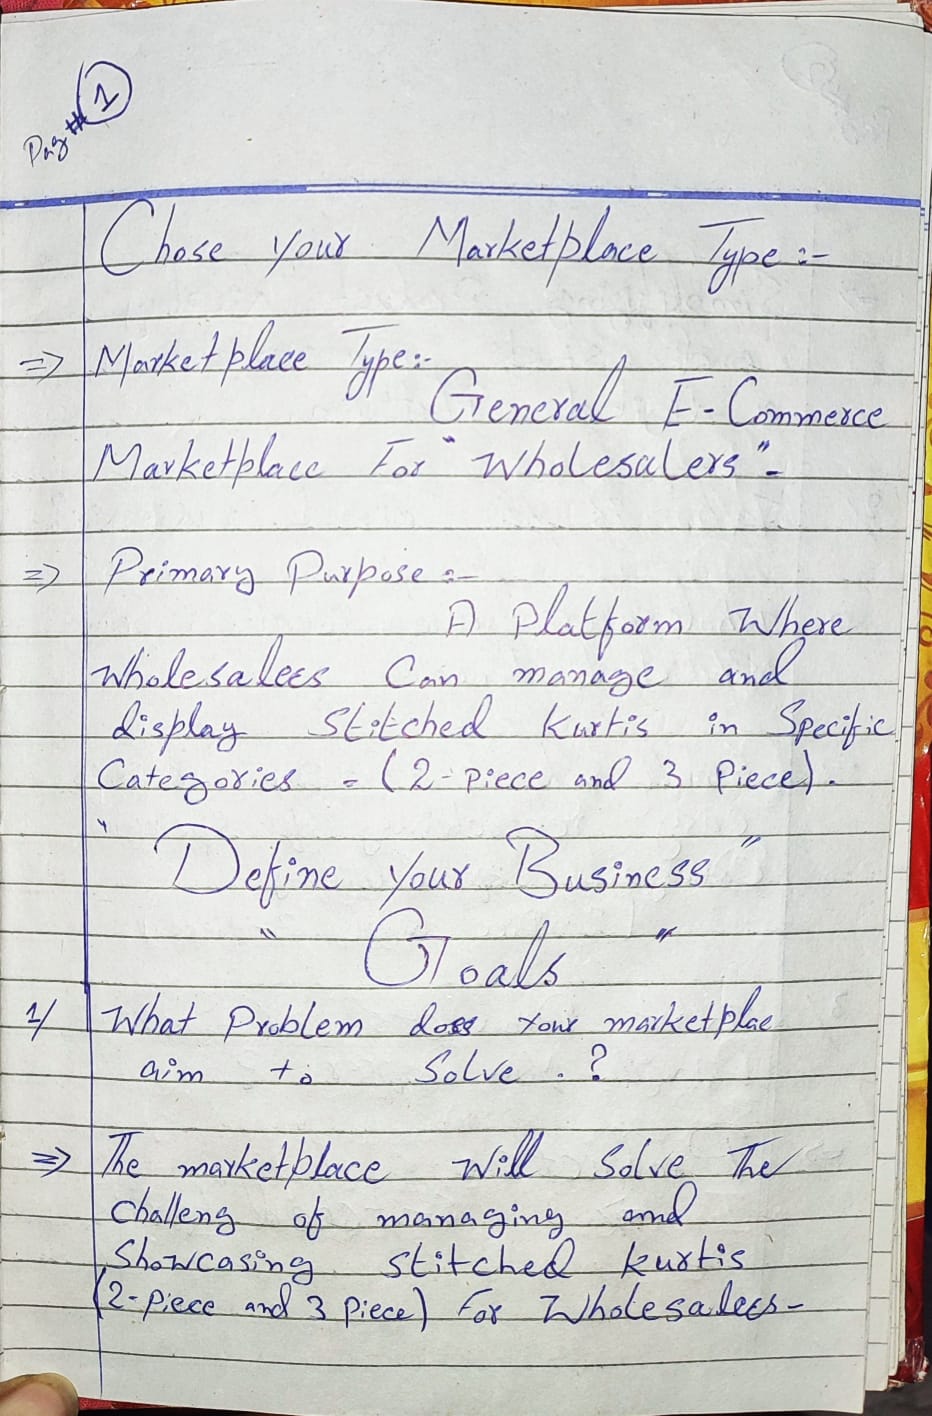 Pag # 1
Chose your Marketplace Type :-
=> Marketplace Type:-
General E-Commerce
Marketplace For "Wholesalers"-
=> Primary Purpose :-
A Platform Where
Wholesalers Can manage and
display Stitched Kurtis in Specific
Categories = (2-piece and 3 Piece).
"Define your Business"
"Goals"
1/ What Problem does your marketplae
aim to Solve . ?
=> The marketplace will Solve The
Challeng of managing and
Showcasing Stitched kurtis
(2-Piece and 3 Piece) For Wholesalers-